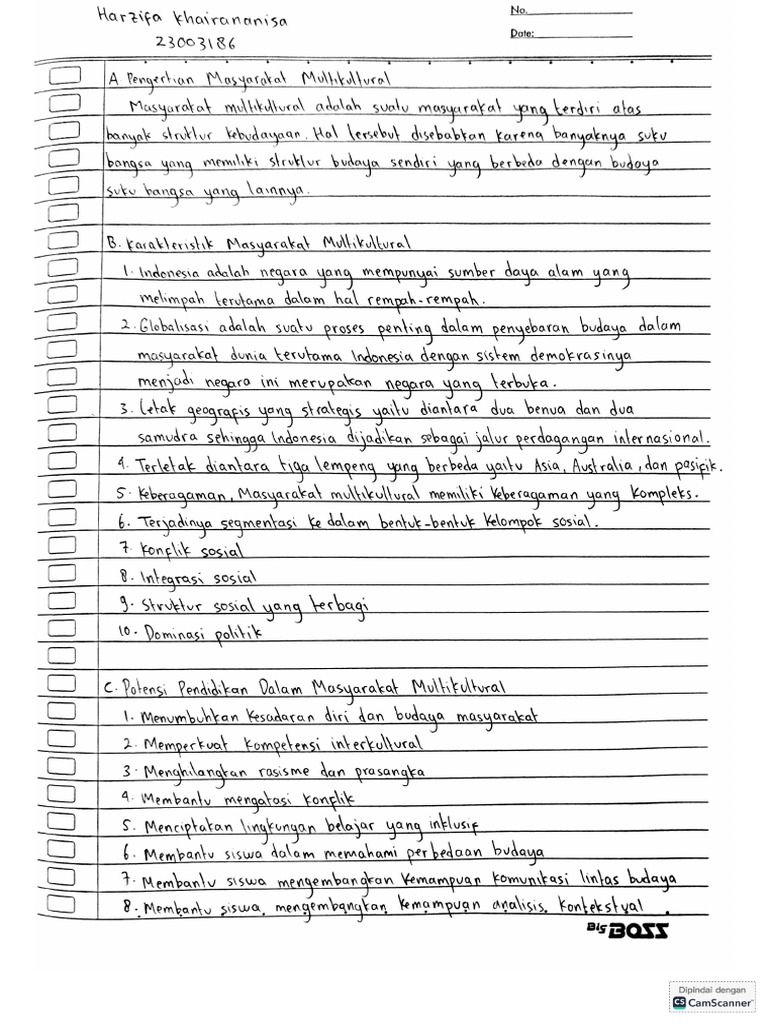 Harzifa Khairananisa
No.
23003186
Date:
A Pengertian Masyarakat Multikultural
Masyarakat multikultural adalah suatu masyarakat yang terdiri atas
banyak struktur kebudayaan. Hal tersebut disebabkan karena banyaknya suku
bangsa yang memiliki struktur budaya sendiri yang berbeda dengan budaya
suku bangsa yang lainnya.
B. Karakteristik Masyarakat Multikultural
1. Indonesia adalah negara yang mempunyai sumber daya alam yang
melimpah terutama dalam hal rempah-rempah.
2. Globalisasi adalah suatu proses penting dalam penyebaran budaya dalam
masyarakat dunia terutama Indonesia dengan sistem demokrasinya
menjadi negara ini merupakan negara yang terbuka.
3. Letak geografis yang strategis yaitu diantara dua benua dan dua
samudra sehingga Indonesia dijadikan sebagai jalur perdagangan internasional.
4. Terletak diantara tiga lempeng yang berbeda yaitu Asia, Australia, dan pasifik.
5. Keberagaman, Masyarakat multikultural memiliki keberagaman yang kompleks.
6. Terjadinya segmentasi ke dalam bentuk-bentuk kelompok sosial.
7. Konflik sosial
8. Integrasi sosial
9. Struktur sosial yang terbagi
10. Dominasi politik
C. Potensi Pendidikan Dalam Masyarakat Multikultural
1. Menumbuhkan kesadaran diri dan budaya masyarakat
2. Memperkuat kompetensi interkultural
3. Menghilangkan rasisme dan prasangka
4. Membantu mengatasi konflik
5. Menciptakan lingkungan belajar yang inklusif
6. Membantu siswa dalam memahami perbedaan budaya
7. Membantu siswa mengembangkan kemampuan komunikasi lintas budaya
8. Membantu siswa mengembangkan kemampuan analisis kontekstual
Big BOSS
Dipindai dengan
CS CamScanner